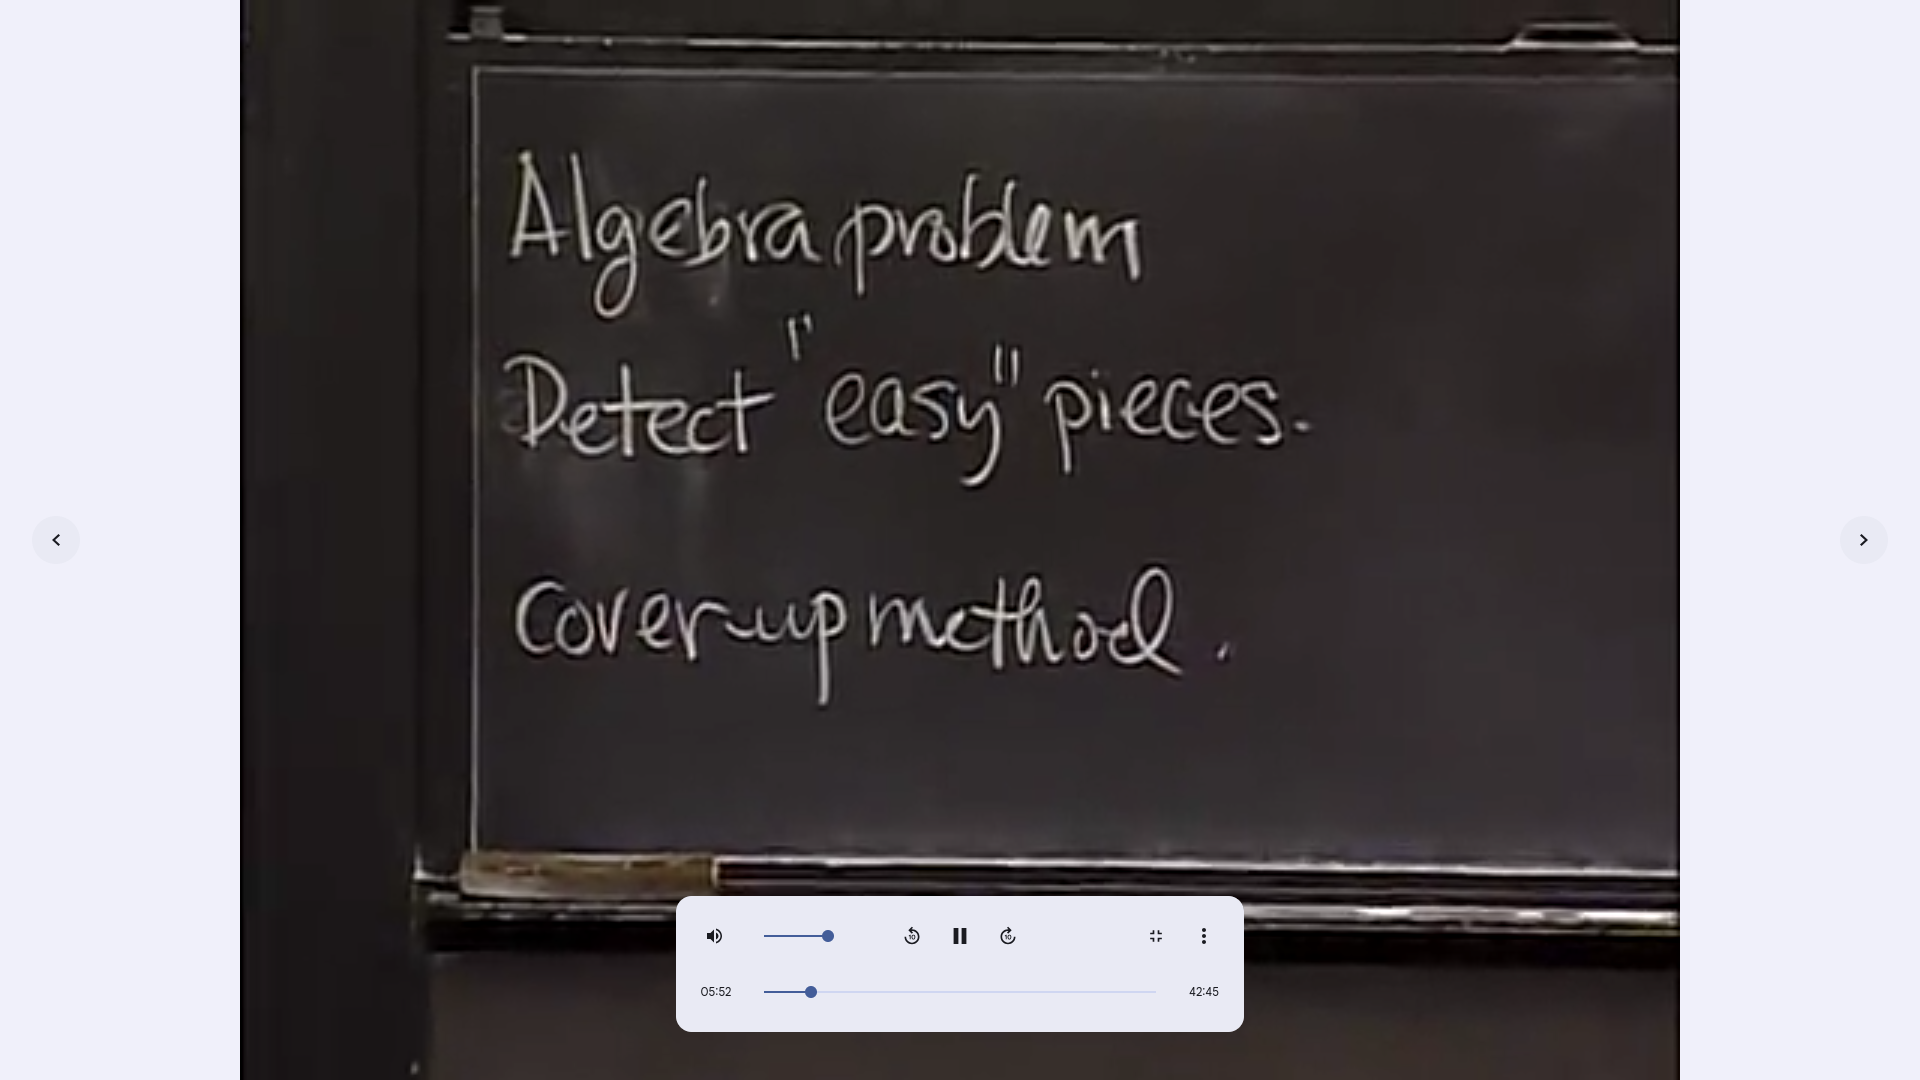 Algebra problem
Detect "easy" pieces.
Cover-up method.
05:52
42:45